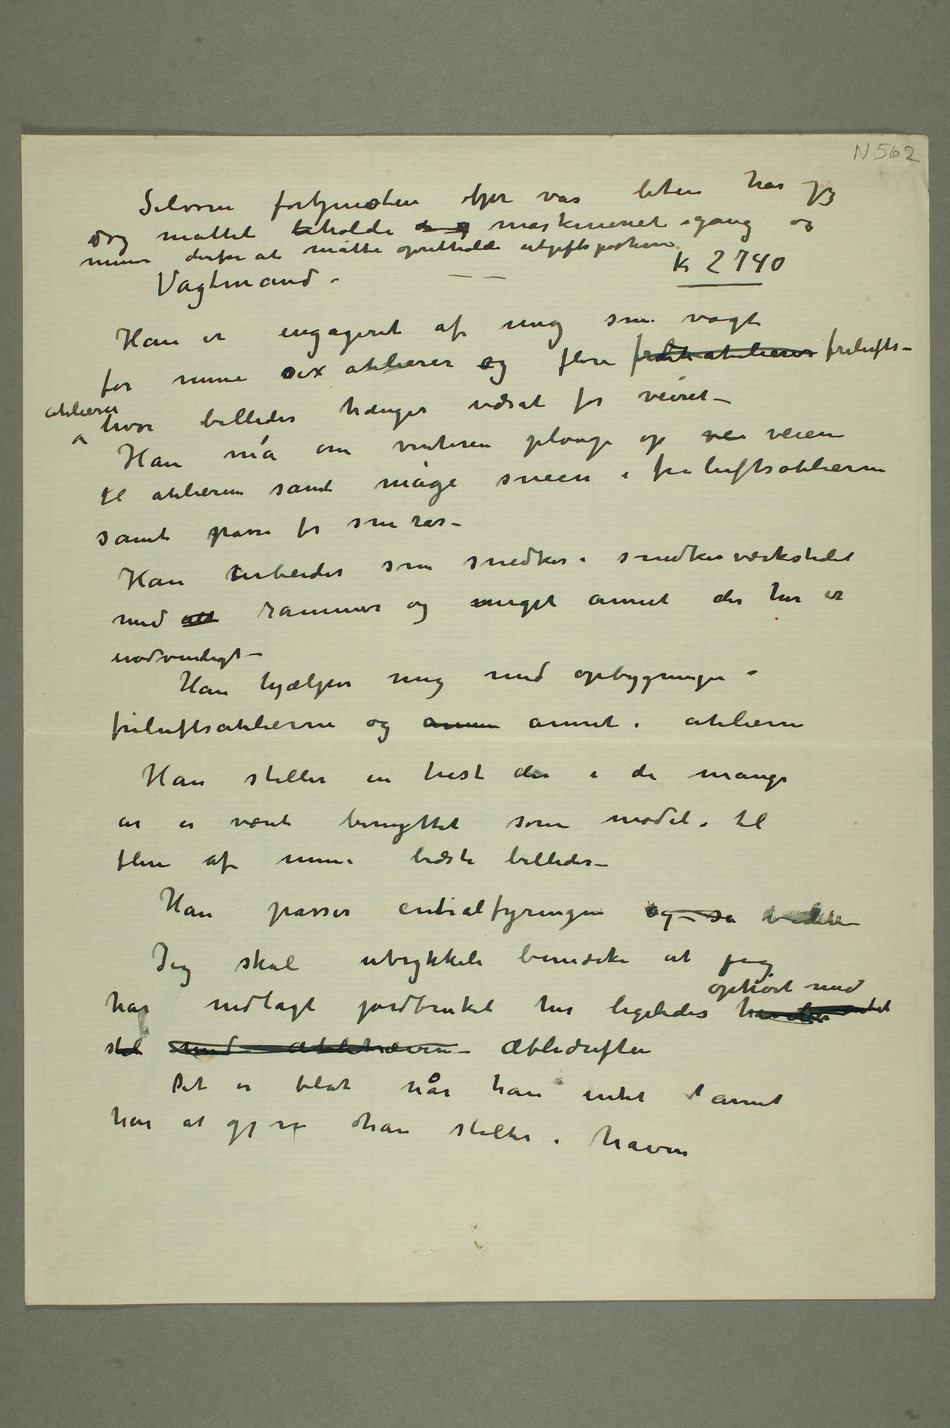 N 562
Selvom fortjenesten bjer var liten har jeg
dog måttet beholde maskineriet igang og
mener derfor at måtte opretholde utgiftsposterne
Vagtmand – — — Kr 2740
Han er engageret af mig som vagt
for mine sex atelierer og flere friluftsatelierer frilufts–
atelierer
hvor billeder hænger udsat for veiret –
Han må om vinteren plouge op vei veien
til atelieren samt måge sneen i friluftsatelierne
samt passe for sne ras –
Han arbeider som snedker i snedkerværkstedet
med at rammer og meget annet der her er
nødvendigt –
Han hjælper mig med opbygninger i
friluftsatelierne og annen annet i atelierne
Han stiller en hest der i de mange
år er været benyttet som model i til
flere af mine bedste billeder –
Han passer centralfyringen og så
Jeg skal utrykkeli bemærke at jeg
ophørt med
har nedlagt jordbruket her ligeledes
stel med æbletræerne – Æbledriften
Det er blot når han intet annet
har at gjøre han steller i haven